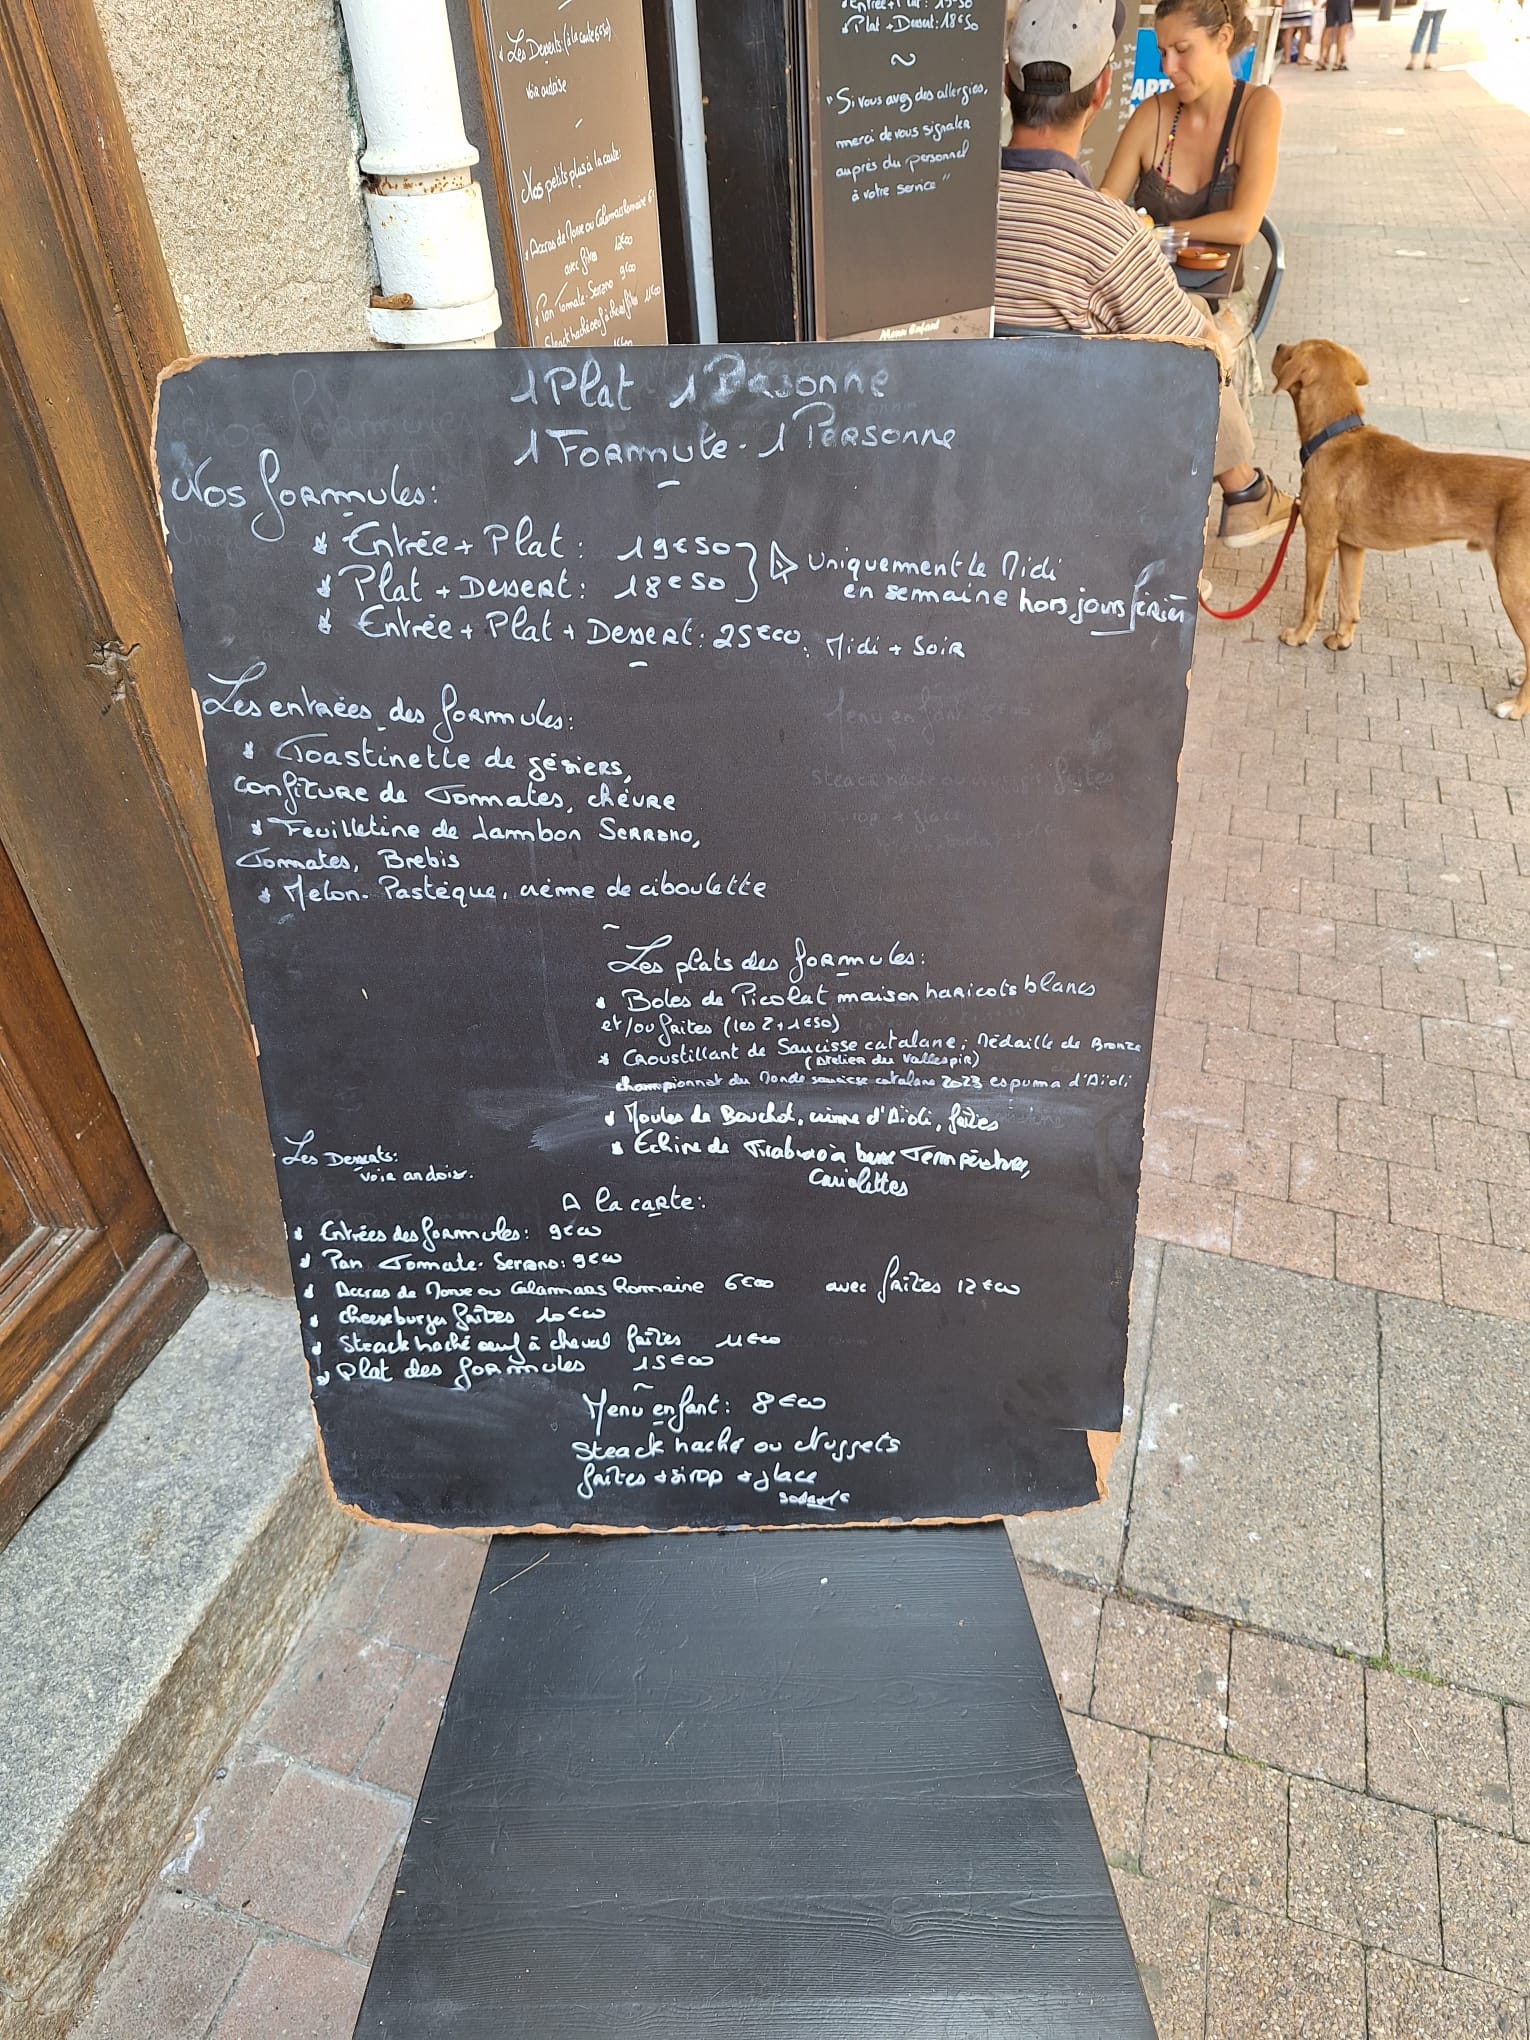 Les Desserts: (à la carte 6€50)
voir ardoise
Nos petits plus à la carte:
* Accras de Morue ou Calamars Romaine 6€
avec frites 12€00
* Pan Tomate-Serrano 9€00
Steack haché oeuf à cheval frites 11€00
* Plat + Dessert: 18€50
~
"Si vous avez des allergies,
merci de vous signaler
auprès du personnel
à votre service"
Menu Enfant
1 Plat 1 Personne
1 Formule - 1 Personne
Nos formules:
* Entrée + Plat: 19€50
* Plat + Dessert: 18€50
Uniquement le Midi
en semaine hors jours fériés
* Entrée + Plat + Dessert: 25€00. Midi + Soir
Les entrées des formules:
* Toastinette de gésiers,
Confiture de Tommates, chèvre
* Feuilletine de Jambon Serrano,
Tommates, Brebis
* Melon-Pastèque, crème de ciboulette
~
Les plats des formules:
* Boles de Picolat maison haricots blancs
et/ou frites (les 2 + 1€50)
* Croustillant de Saucisse catalane; Médaille de Bronze
(Atelier du Vallespir)
championnat du Monde saucisse catalane 2023 espuma d'Aïoli
* Moules de Bouchot, crème d'Aïoli, frites
* Echine de à basse Température,
Les Desserts:
voir ardoise.
A la carte:
* Entrées des formules: 9€00
* Pan Tommate-Serrano: 9€00
* Accras de Morue ou Calamaas Romaine 6€00 avec frites 12€00
* cheeseburger frites 10€00
* Steack haché oeuf à cheval frites 11€00
* Plat des formules 15€00
~
Menu enfant: 8€00
Steack haché ou Nuggets
frites + sirop + glace
soda+1€